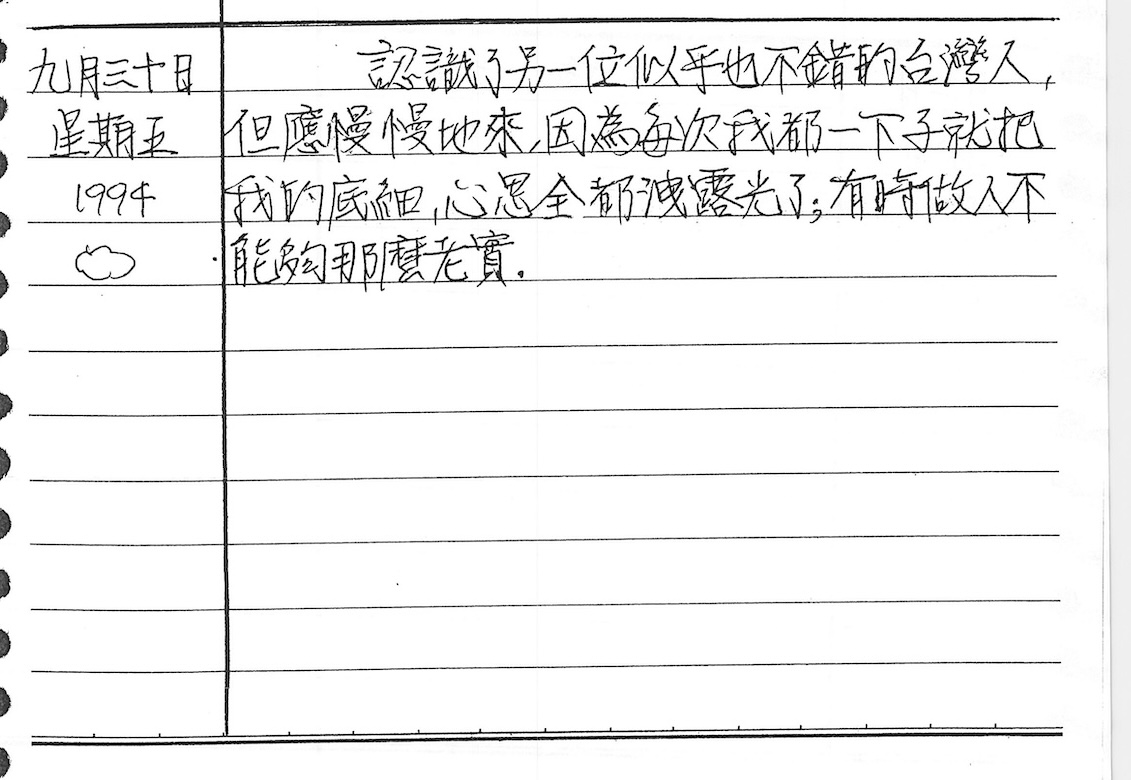 九月三十日
星期五
1994
認識了另一位似乎也不錯的台灣人,
但應慢慢地來,因為每次我都一下子就把
我的底細,心思全都洩露光了;有時做人不
能夠那麼老實.